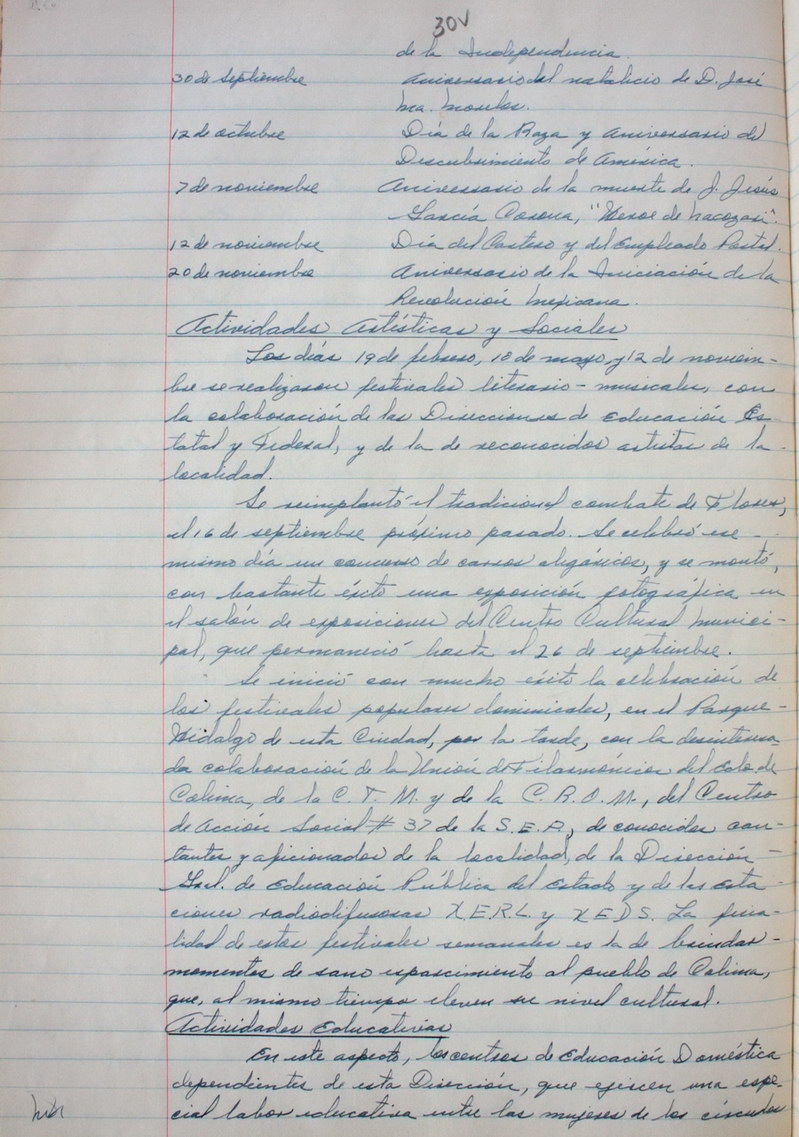 30V
de la Independencia.
30 de septiembre Aniversario del natalicio de D. José
Ma. Morelos.
12 de octubre Día de la Raza y aniversario del
Descubrimiento de América.
7 de noviembre Aniversario de la muerte de J. Jesús
García Corona, "Héroe de Nacozari".
12 de noviembre Día del Cartero y del Empleado Postal.
20 de noviembre Aniversario de la Iniciación de la
Revolución Mexicana.
Actividades Artísticas y Sociales
Los días 19 de febrero, 10 de mayo, y 12 de noviem-
bre se realizaron festivales literario-musicales, con
la colaboración de las Direcciones de Educación Es-
tatal y Federal, y de la de reconocidos artistas de la
localidad.
Se reimplantó el tradicional combate de Flores,
el 16 de septiembre próximo pasado. Se celebró ese
mismo día un concurso de carros alegóricos, y se montó,
con bastante éxito una exposición fotográfica en
el salón de exposiciones del Centro Cultural Munici-
pal, que permaneció hasta el 26 de septiembre.
Se inició con mucho éxito la celebración de
los festivales populares dominicales, en el Parque
Hidalgo de esta Ciudad, por la tarde, con la desinteresa-
da colaboración de la Unión de Filarmónicos del Edo. de
Colima, de la C.T.M. y de la C.R.O.M., del Centro
de Acción Social # 37 de la S.E.P., de conocidos can-
tantes y aficionados de la localidad, de la Dirección
Gral. de Educación Pública del Estado y de las esta-
ciones radiodifusoras X.E.R.L. y X E D S. La fina-
lidad de estos festivales semanales es la de brindar
momentos de sano esparcimiento al pueblo de Colima,
que, al mismo tiempo eleven su nivel cultural.
Actividades Educativas
En este aspecto, los centros de Educación Doméstica
dependientes de esta Dirección, que ejercen una espe-
cial labor educativa entre las mujeres de los círculos